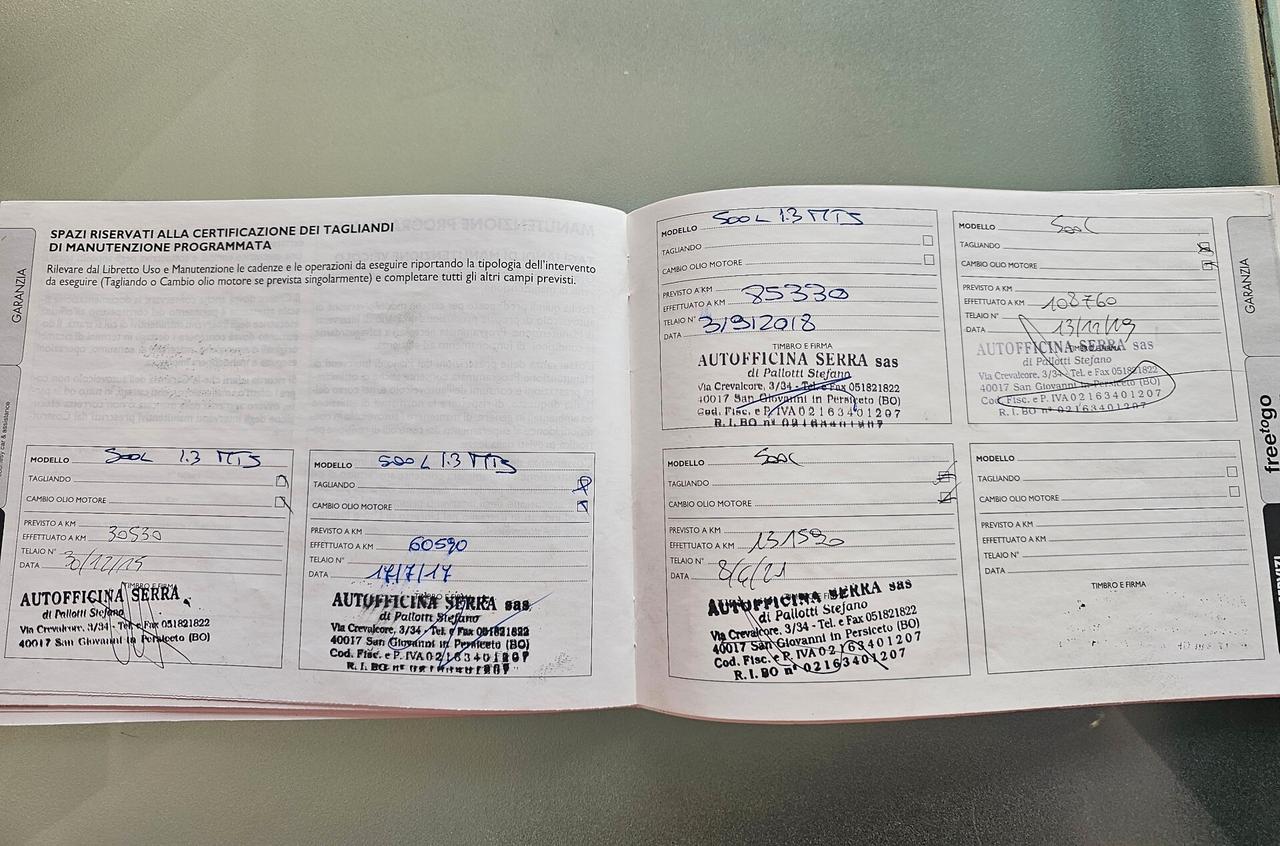 SPAZI RISERVATI ALLA CERTIFICAZIONE DEI TAGLIANDI
DI MANUTENZIONE PROGRAMMATA
Rilevare dal Libretto Uso e Manutenzione le cadenze e le operazioni da eseguire riportando la tipologia dell'intervento
da eseguire (Tagliando o Cambio olio motore se prevista singolarmente) e completare tutti gli altri campi previsti.
GARANZIA
courtesy car & assistance
MODELLO 500L 1.3 MTJ
TAGLIANDO
CAMBIO OLIO MOTORE
PREVISTO A KM
EFFETTUATO A KM 30530
TELAIO N°
DATA 30/12/15
TIMBRO E FIRMA
AUTOFFICINA SERRA
di Pallotti Stefano
Via Crevalcore, 3/34 - Tel. e Fax 051821822
40017 San Giovanni in Persiceto (BO)
MODELLO 500L 1.3 MTJ
TAGLIANDO
CAMBIO OLIO MOTORE
PREVISTO A KM
EFFETTUATO A KM 60590
TELAIO N°
DATA 17/7/17
AUTOFFICINA SERRA sas
di Pallotti Stefano
Via Crevalcore, 3/34 - Tel. e Fax 051821822
40017 San Giovanni in Persiceto (BO)
Cod. Fisc. e P. IVA 02163401207
R. I. BO n°
MODELLO 500L 1.3 MTJ
TAGLIANDO
CAMBIO OLIO MOTORE
PREVISTO A KM
EFFETTUATO A KM 85330
TELAIO N°
DATA 3/9/2018
TIMBRO E FIRMA
AUTOFFICINA SERRA sas
di Pallotti Stefano
Via Crevalcore, 3/34 - Tel. e Fax 051821822
40017 San Giovanni in Persiceto (BO)
Cod. Fisc. e P. IVA 02163401207
R. I. BO n° 02163401207
MODELLO 500L
TAGLIANDO
CAMBIO OLIO MOTORE
PREVISTO A KM
EFFETTUATO A KM 108760
TELAIO N°
DATA 13/12/19
TIMBRO E FIRMA
AUTOFFICINA SERRA sas
di Pallotti Stefano
Via Crevalcore, 3/34 - Tel. e Fax 051821822
40017 San Giovanni in Persiceto (BO)
Cod. Fisc. e P. IVA 02163401207
R. I. BO n° 02163401207
MODELLO 500L
TAGLIANDO
CAMBIO OLIO MOTORE
PREVISTO A KM
EFFETTUATO A KM 131590
TELAIO N°
DATA 8/6/21
AUTOFFICINA SERRA sas
di Pallotti Stefano
Via Crevalcore, 3/34 - Tel. e Fax 051821822
40017 San Giovanni in Persiceto (BO)
Cod. Fisc. e P. IVA 02163401207
R. I. BO n° 02163401207
MODELLO
TAGLIANDO
CAMBIO OLIO MOTORE
PREVISTO A KM
EFFETTUATO A KM
TELAIO N°
DATA
TIMBRO E FIRMA
GARANZIA
freetogo